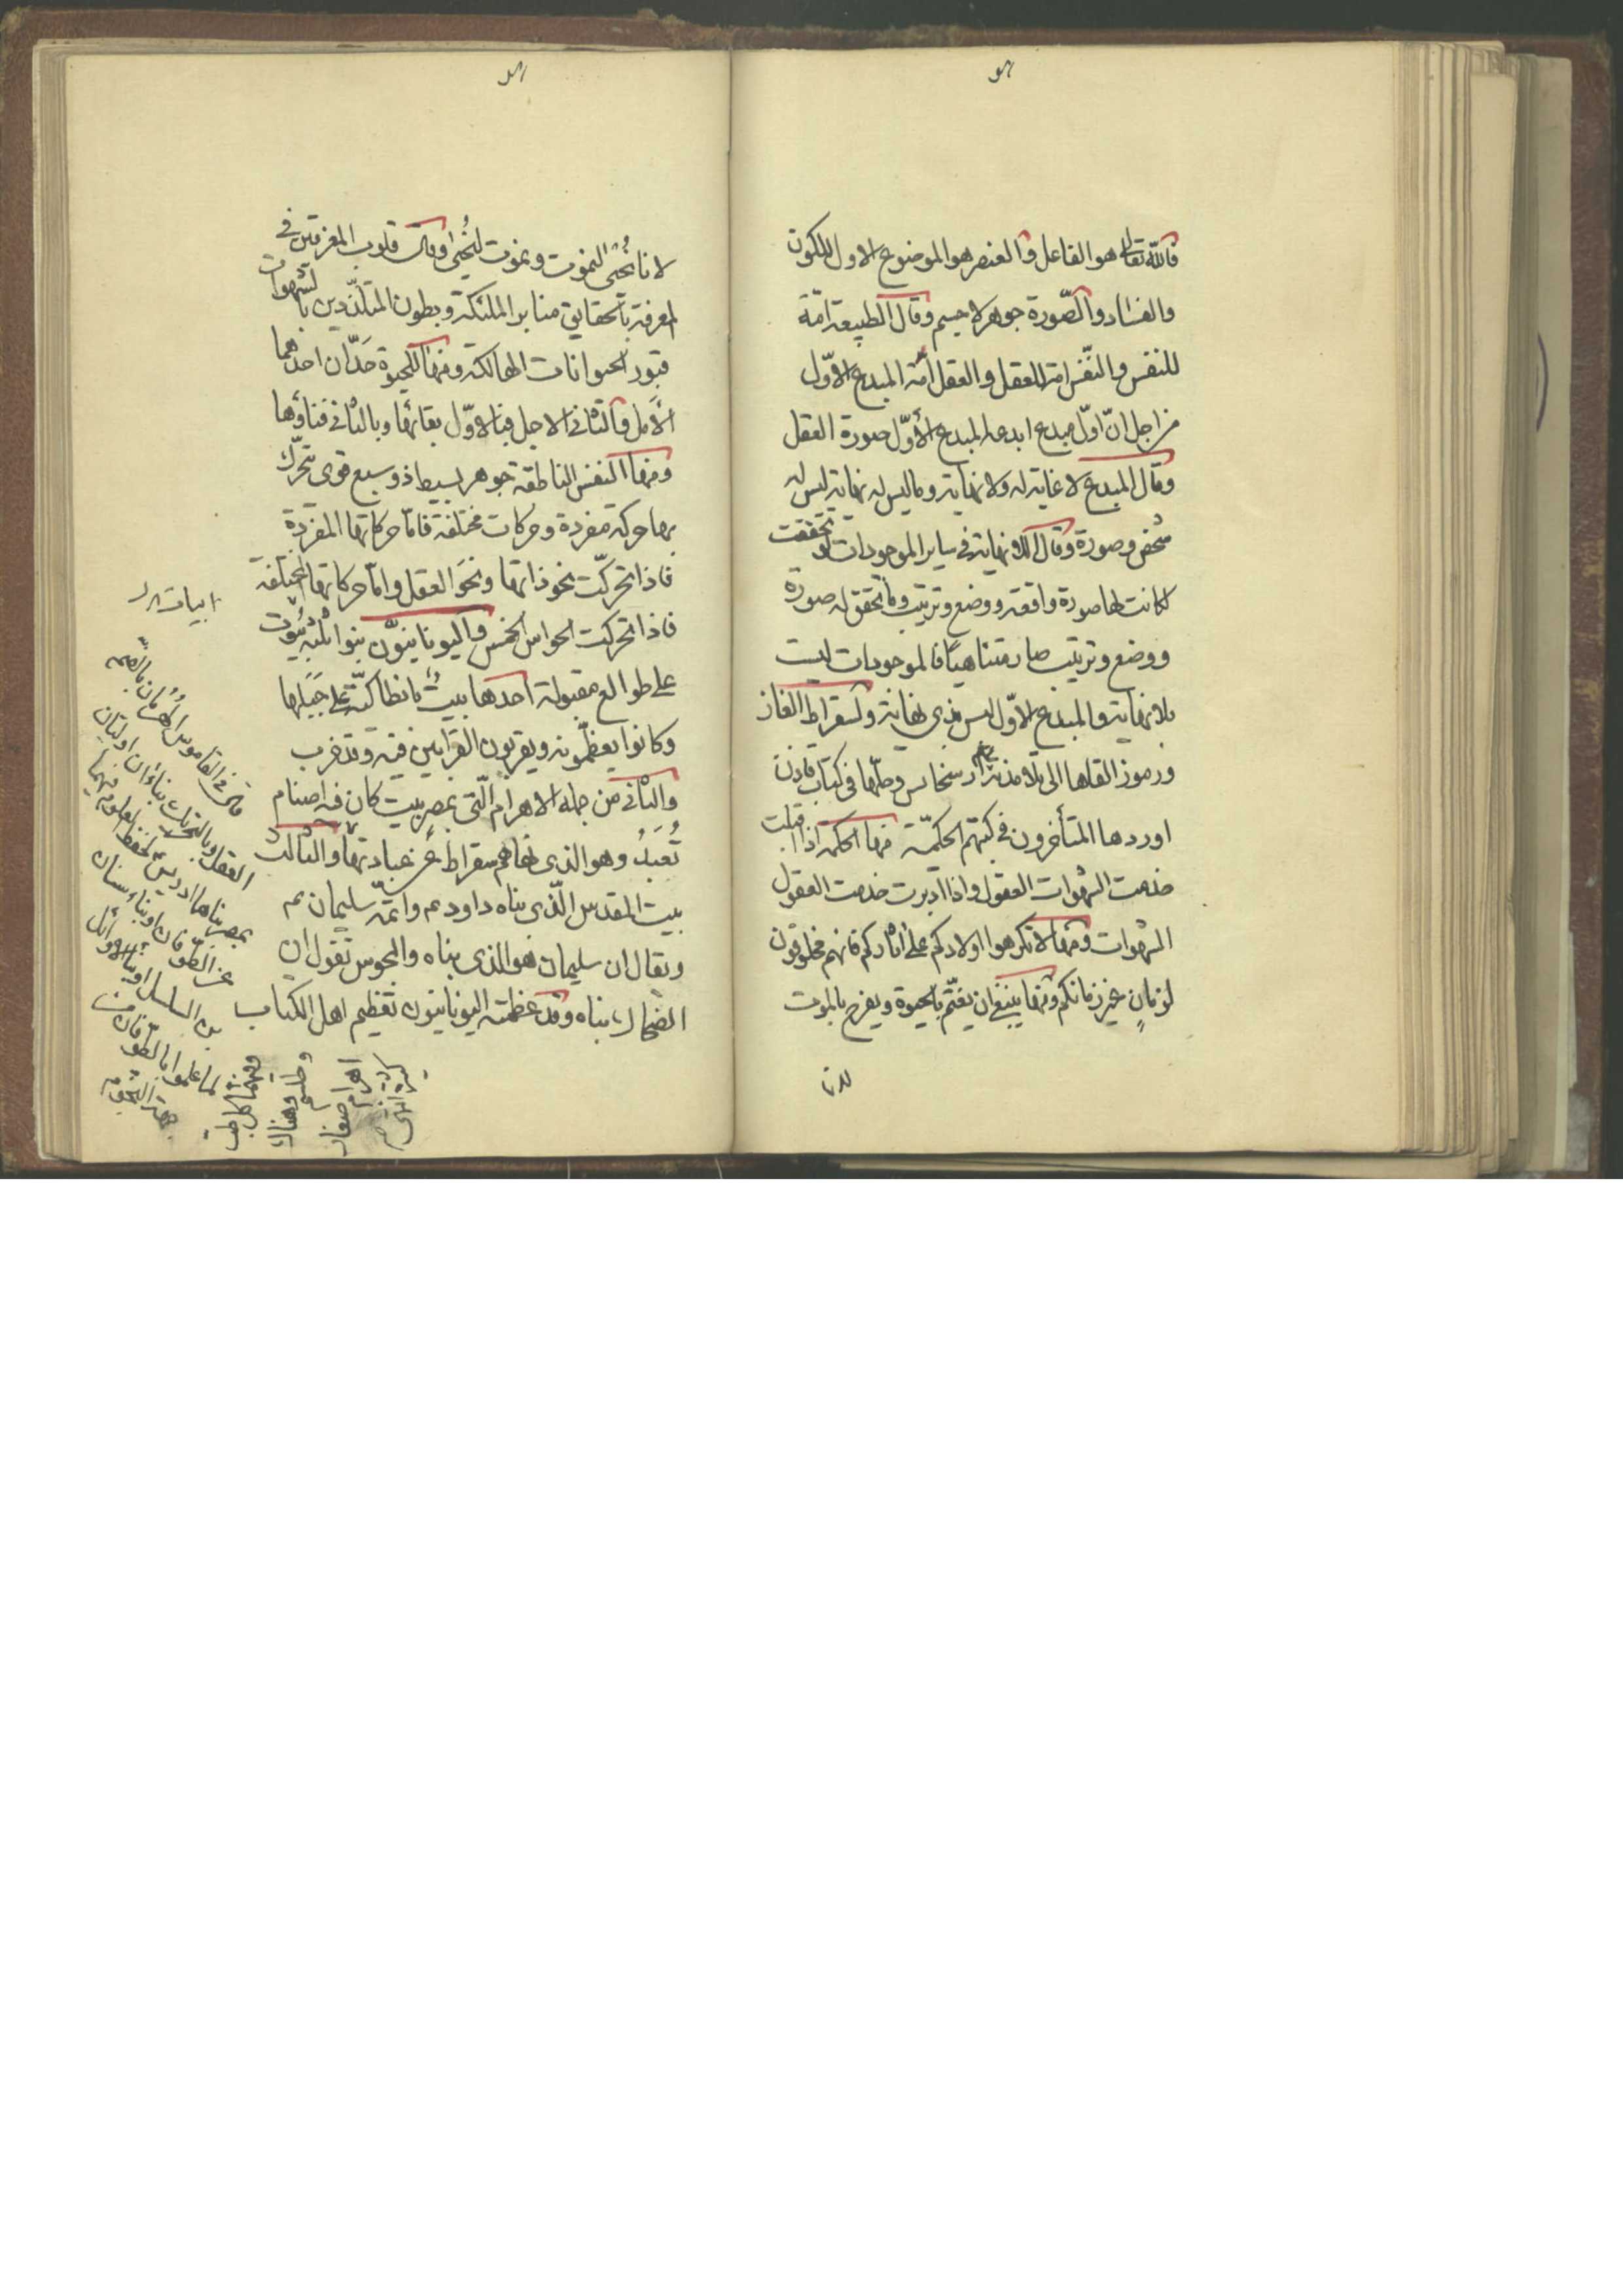 فالله تعالى هو الفاعل والعنصر هو الموضوع الاول للكون
والفساد والصّورة جوهر لا جسم وقال الطبيعة امة
للنفس والنّفس امة للعقل والعقل امة المبدع الاوّل
من اجل انّ اوّل مبدع ابدعه المبدع الأوّل صورة العقل
وقال المبدع لا غاية له ولا نهاية وما ليس له نهاية ليس له
شخص وصورة وقال اللا نهاية في ساير الموجودات لو تحققت
لكانت لها صورة واقعة ووضع وترتيب وما تحقق له صورة
ووضع وترتيب صار متناهيًا فالموجودات ليست
بلا نهاية والمبدع الاوّل ليس بذي نهاية ولسقراط الغاز
ورموز القاها الى تلامذته ارسخانس وحلّها في كتاب فادن
اوردها المتأخرون في كتبهم الحكميّة منها الحكمة اذا اقبلت
خدمت الشهوات العقول واذا أدبرت خدمت العقول
الشهوات ومنها لا تكرهوا اولادكم على اثاركم فانهم مخلوقون
لزمانٍ غير زمانكم ومنها ينبغي ان يغتم بالحيوة ويفرح بالموت
لانا
لانا نحيى لنموت ونموت لنحيى وقال قلوب المغرقين في
المعرفة بالحقايق منابر الملئكة وبطون المتلذّذين بالشهوات
قبور الحيوانات الهالكة ومنها للحيوة حَدّان احدهما
الأمل والثاني الاجل فبالاوّل بقائها وبالثاني فناؤها
ومنها النفس الناطقة جوهر بسيط ذو سبع قوى تتحرّك
بها حركة مفردة وحركات مختلفة فامّا حركاتها المفردة
فاذا تحركّت نحو ذاتها ونحو العقل وامّا حركاتها المختلفة
فاذا تحركت الحواس الخمس واليونانيّون بنوا ثلثة بيوت
على طوالع مقبولة احدها بيت بانطاكيّة على جبلها
وكانوا يعظّمونه ويقربون القرابين فيه وقد خرب
والثاني من جملة الاهرام الّتي بمصر بيت كان فيه اصنام
تُعبَدُ وهو الذي نهاهم سقراط عن عبادتها والثالث
بيت المقدس الّذي بناه داود ع م واتمّه سليمان ع م
ويقال ان سليمان هو الذي بناه والمجوس تقول ان
الضحاك بناه وقد عظمته اليونانيّون تعظيم اهل الكتاب
قال في القاموس الهرمان بالضم
العقل وبالتحريك بناءان اوليان
بمصر بناهما ادريس لحفظ العلوم فيهما
عن الطوفان او بناء سنان
بن المشلشل او بناء الاوائل
لما علموا بالطوفان من
جهة النجوم
وفيهما كل طب
وطلسم وهناك
اهرام صغار
كثيرة انتهى